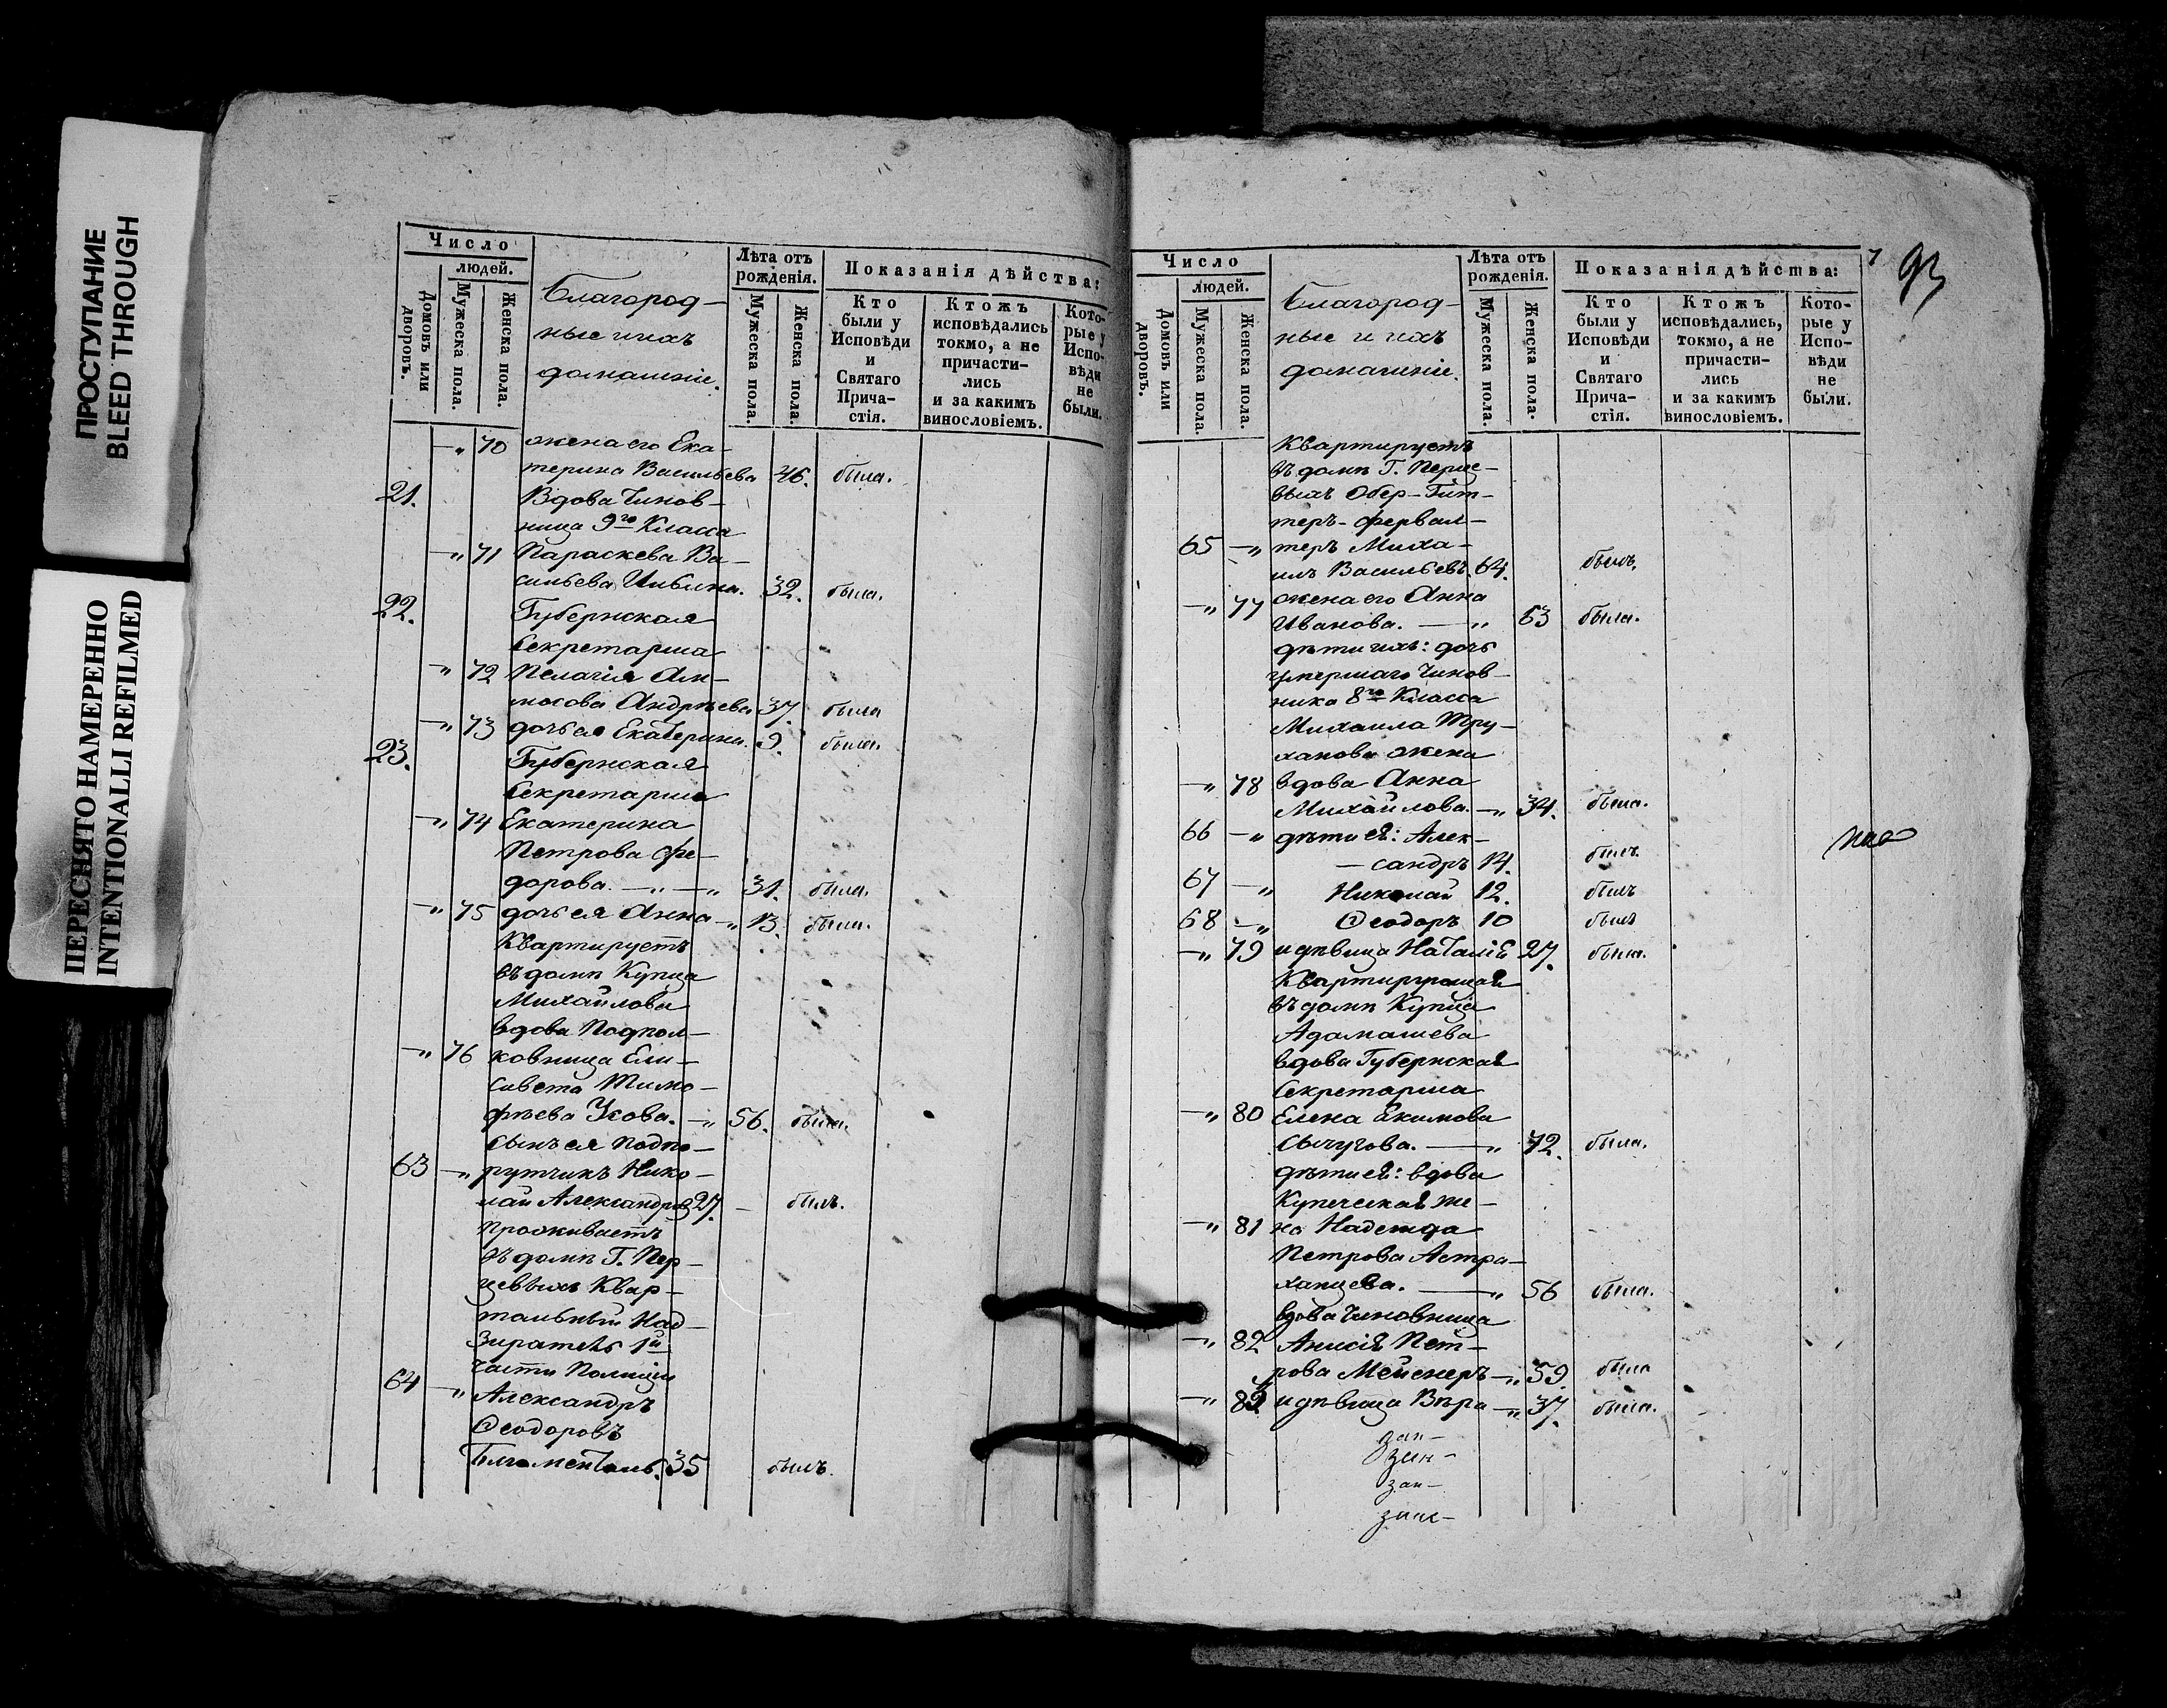 ПРОСТУПАНИЕ
BLEED THROUGH
ПЕРЕСНЯТО НАМЕРЕННО
INTENTIONALLI REFILMED
Число
людей.
Домовъ или дворовъ.
Мужеска пола.
Женска пола.
Благород-
ные и ихъ
домашніе.
Лѣта отъ
рожденія.
Мужеска пола.
Женска пола.
Показанія дѣйства:
Кто
были у
Исповѣди
и
Святаго
Прича-
стія.
Ктожъ
исповѣдались
токмо, а не
причасти-
лись
и за какимъ
винословіемъ.
Кото-
рые у
Испо-
вѣди
не
были.
—„ 70 жена его Ека-
терина Васильева 46. была.
21. Вдова Чинов-
ница 9го Класса
—„ 71 Параскева Ва-
сильева 32. была.
22. Губернская
Секретарша
—„ 72 Пелагія
Андрѣева 37. была
—„ 73 дочь ея Екатерина. 9. была.
23. Губернская
Секретарша
—„ 74 Екатерина
Петрова Фе-
дорова. —„—„ 31. была.
—„ 75 дочь ея Анна —„ 13. была.
Квартируетъ
въ домѣ Купца
Михайлова
вдова Подпол-
—„ 76 ковница Ели-
савета Тимо-
фѣева Ускова. —„ 56. была.
Сынъ ея Подпо-
63 —„ рутчикъ Нико-
лай Александровъ 27. — былъ.
Проживаетъ
въ домѣ Г. Пер-
цевыхъ Квар-
тальный Над-
зиратель 1й
части Полиціи
64 —„ Александръ
Ѳеодоровъ
35 былъ.
93
Число
людей.
Домовъ или дворовъ.
Мужеска пола.
Женска пола.
Благород-
ные и ихъ
домашніе.
Лѣта отъ
рожденія.
Мужеска пола.
Женска пола.
Показанія дѣйства:
Кто
были у
Исповѣди
и
Святаго
Прича-
стія.
Ктожъ
исповѣдались,
токмо, а не
причасти-
лись
и за какимъ
винословіемъ.
Кото-
рые у
Испо-
вѣди
не
были.
Квартируетъ
въ домѣ Г. Перце-
выхъ Обер-Гит-
теръ-фервал-
65 —„ теръ Миха-
илъ Васильевъ 64. былъ.
—„ 77 жена его Анна
Иванова. —„ 63 была.
дѣти ихъ: дочь
умершаго Чинов-
ника 8го Класса
Михаила Тру-
ханова жена
—„ 78 вдова Анна
Михайлова. —„ 34. была.
66 —„ дѣти ея: Алек-
— сандръ 14. былъ.
67 —„ Николай 12. былъ
68 —„ Ѳеодоръ 10 былъ
—„ 79 и дѣвица Наталія 27. была.
Квартирующая
въ домѣ Купца
Адамашева
вдова Губернская
Секретарша
—„ 80 Елена Екимова
Сычугова. —„ 72. была.
дѣти ея: вдова
Купеческая же-
—„ 81 на Надежда
Петрова Астра-
ханцева. —„ 56 была.
вдова Чиновница
—„ 82 Анисія Пет-
рова Мейснеръ —„ 59. была
—„ 83. и дѣвица Вѣра —„ 37. была.